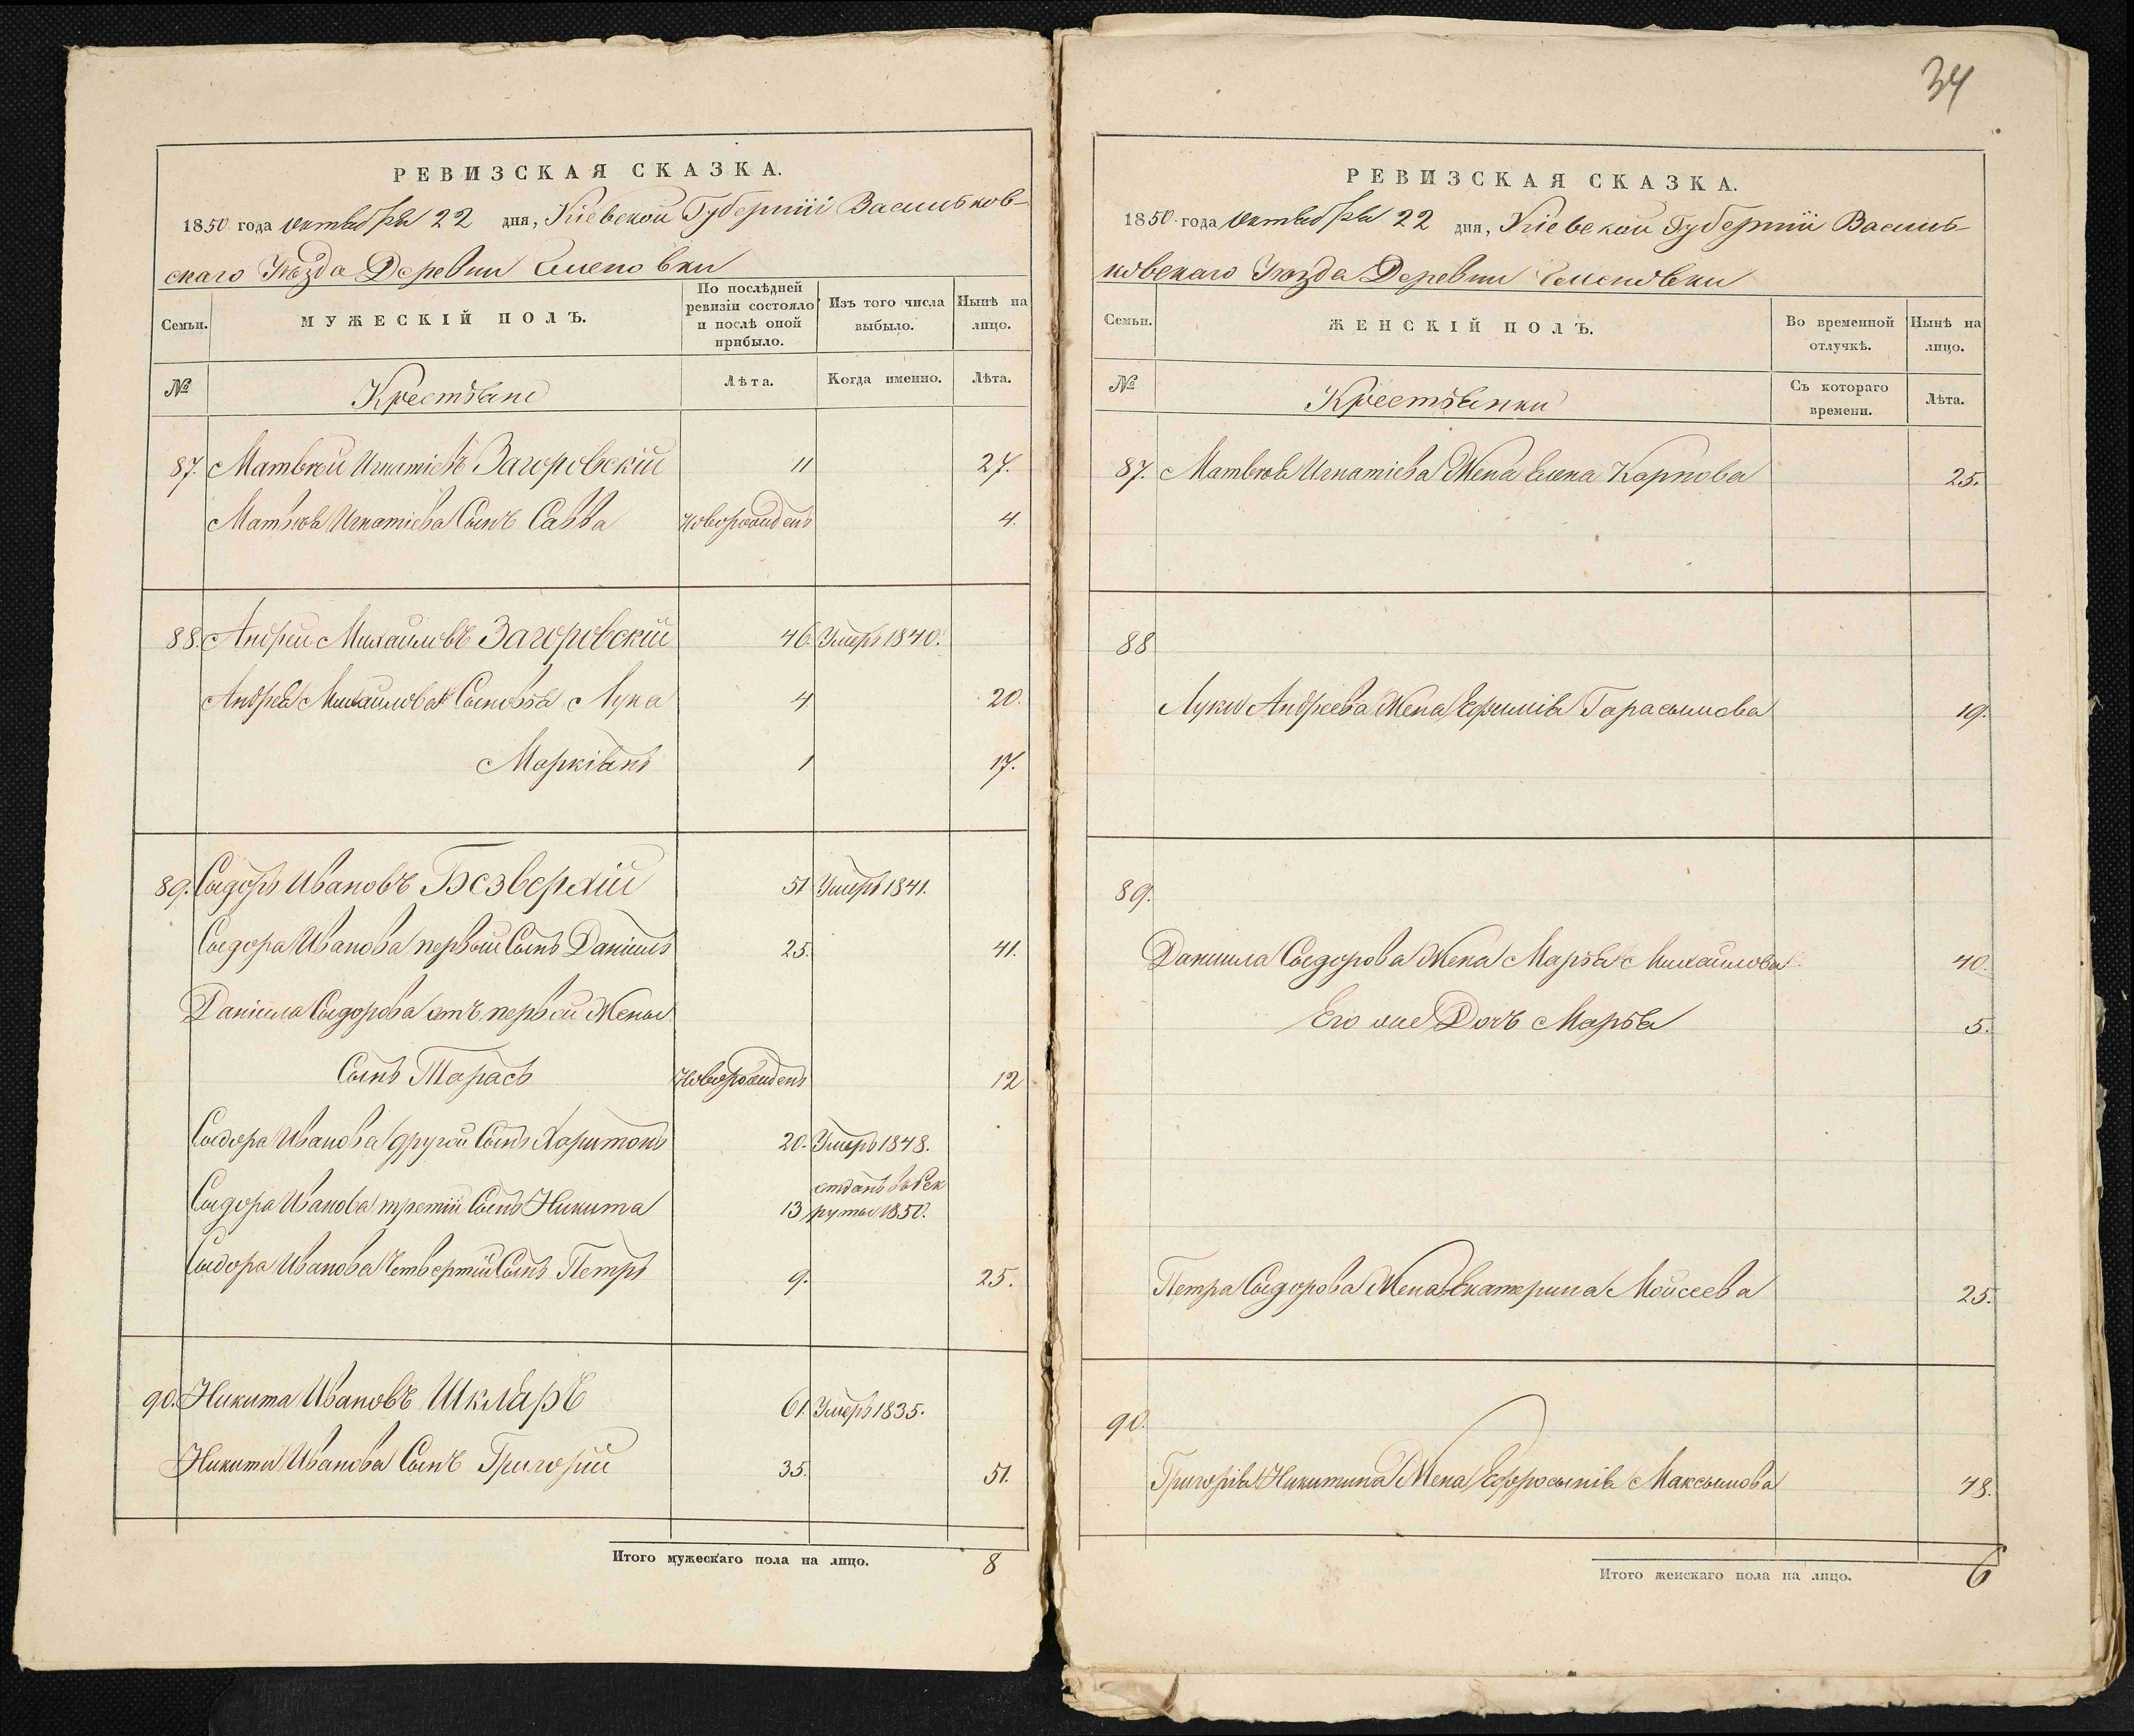 РЕВИЗСКАЯ СКАЗКА.
1850 года Октября 22 дня, Кіевской Губерніи Васильков-
скаго Уѣзда Деревни Еленовки
Семьи.
МУЖЕСКІЙ ПОЛЪ.
По послѣдней
ревизіи состояло
и послѣ оной
прибыло.
Изъ того числа
выбыло.
Нынѣ на
лицо.
№
Крестьяне
Лѣта.
Когда именно.
Лѣта.
87. Матвѣй Игнатіевъ Загоровскій 11 27.
Матвѣя Игнатіева Сынъ Савва новорожденъ 4.
88. Андрей Михайловъ Загоровскій 46. Умеръ 1840.
Андрея Михайлова Сыновья Лука 4 20.
Маркіянъ 1 17.
89. Сыдоръ Ивановъ Безверхій 51 Умеръ 1841.
Сыдора Иванова первый Сынъ Даніилъ 25. 41.
Даніила Сыдорова отъ первой Жены
Сынъ Тарасъ Новорожденъ 12
Сыдора Иванова другой Сынъ Харитонъ 20. Умеръ 1848.
Сыдора Иванова третій Сынъ Никита 13 отданъ въ Рек
руты 1850.
Сыдора Иванова Четвертій Сынъ Петръ 9. 25.
90. Никита Ивановъ Шкляръ 61. Умеръ 1835.
Никиты Иванова Сынъ Григорій 35. 51.
Итого мужескаго пола на лицо. 8
34
РЕВИЗСКАЯ СКАЗКА.
1850 года Октября 22 дня, Кіевской Губерніи Василь-
ковскаго Уѣзда Деревни Еленовки
Семьи.
ЖЕНСКІЙ ПОЛЪ.
Во временной
отлучкѣ.
Нынѣ на
лицо.
№
Крестьянки
Съ котораго
времени.
Лѣта.
87. Матвѣя Игнатіева Жена Елена Карпова 25.
88
Луки Андреева Жена Ефимія Гарасымова 19.
89.
Даниила Сыдорова Жена Марья Михайлова 40.
Его же Дочь Марья 5.
Петра Сыдорова Жена Екатерина Мойсеева 25.
90.
Григорія Никитина Жена Ефросынія Максымова 48.
Итого женскаго пола на лицо. 6